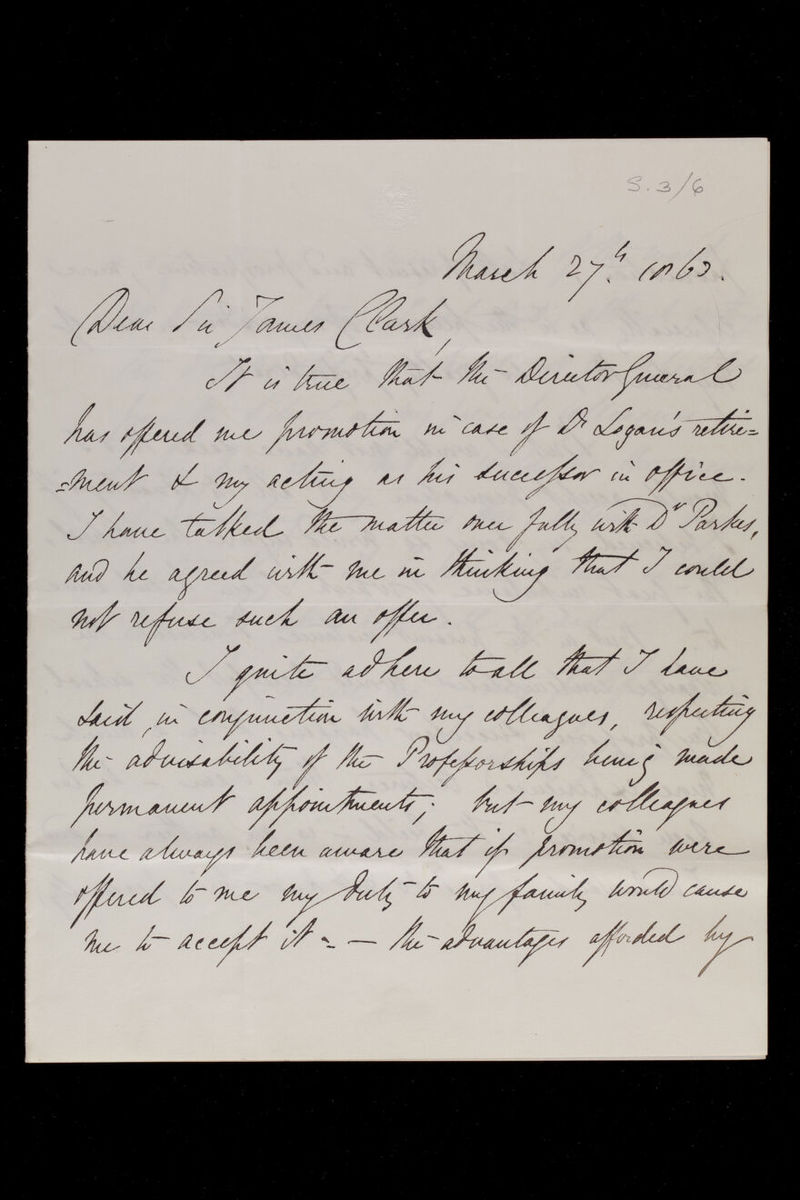 S. 3/6
March 27th. 1863.
Dear Sir James Clark,
It is true that the Director General
has offered me promotion in case of Dr Logan's retire=
=ment & my acting as his successor in office.
I have talked the matter over fully with Dr Parkes,
and he agreed with me in thinking that I could
not refuse such an offer.
I quite adhere to all that I have
said, in conjunction with my colleagues, respecting
the advisability of the Professorships being made
permanent appointments; but my colleagues
have always been aware that if promotion were
offered to me my duty to my family would cause
me to accept it - — the advantages afforded by